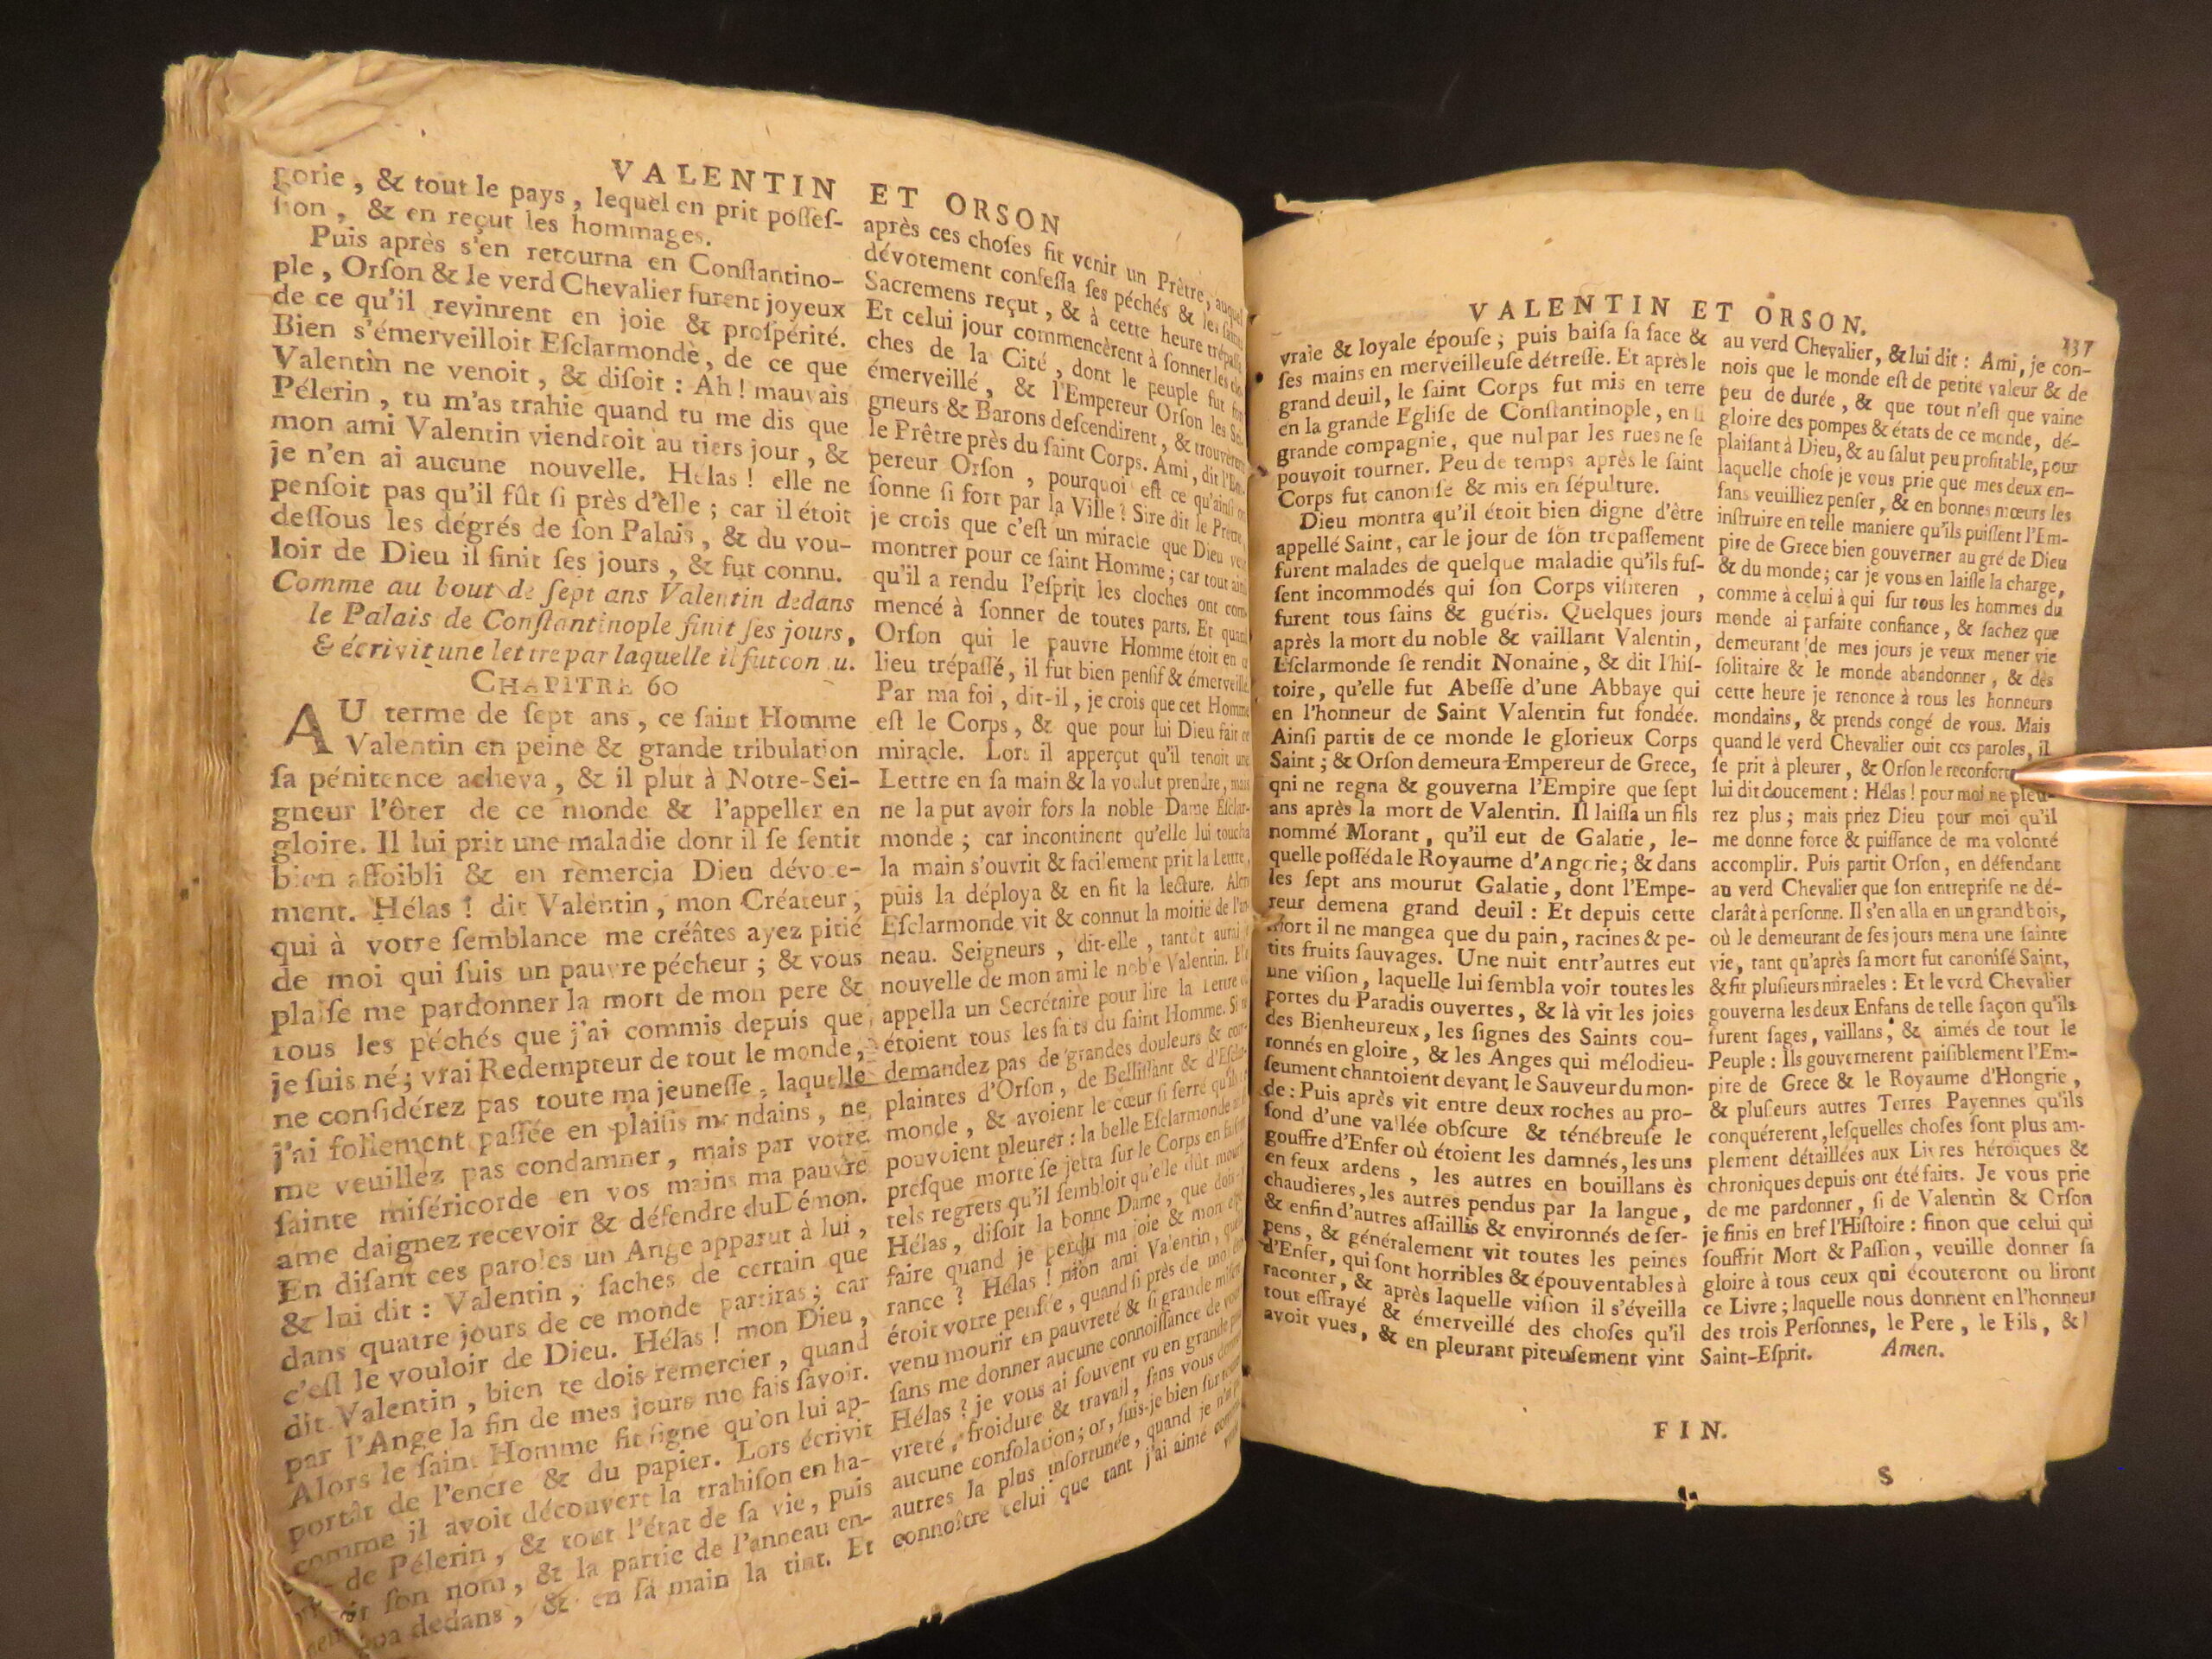 VALENTIN ET ORSON
gorie, & tout le pays, lequel en prit posſeſ-
ſion, & en reçut les hommages.
Puis après s'en retourna en Conſtantino-
ple, Orſon & le verd Chevalier furent joyeux
de ce qu'il revinrent en joie & proſpérité.
Bien s'émerveilloit Eſclarmonde, de ce que
Valentin ne venoit, & diſoit : Ah ! mauvais
Pélerin, tu m'as trahie quand tu me dis que
mon ami Valentin viendroit au tiers jour, &
je n'en ai aucune nouvelle. Hélas ! elle ne
penſoit pas qu'il fût ſi près d'elle ; car il étoit
deſſous les dégrés de ſon Palais, & du vou-
loir de Dieu il finit ſes jours, & fut connu.
Comme au bout de ſept ans Valentin dedans
le Palais de Conſtantinople finit ſes jours,
& écrivit une lettre par laquelle il fut con u.
CHAPITRE 60
AU terme de ſept ans, ce ſaint Homme
Valentin en peine & grande tribulation
ſa pénitence acheva, & il plut à Notre-Sei-
gneur l'ôter de ce monde & l'appeller en
gloire. Il lui prit une maladie dont il ſe ſentit
bien affoibli & en remercia Dieu dévote-
ment. Hélas ! dit Valentin, mon Créateur,
qui à votre ſemblance me créâtes ayez pitié
de moi qui ſuis un pauvre pécheur ; & vous
plaiſe me pardonner la mort de mon pere &
tous les péchés que j'ai commis depuis que
je ſuis né ; vrai Redempteur de tout le monde,
ne conſidérez pas toute ma jeuneſſe, laquelle
j'ai follement paſſée en plaiſis mondains, ne
me veuillez pas condamner, mais par votre
ſainte miſéricorde en vos mains ma pauvre
ame daignez recevoir & défendre du Démon.
En diſant ces paroles un Ange apparut à lui,
& lui dit : Valentin ; ſaches de certain que
dans quatre jours de ce monde partiras ; car
c'eſt le vouloir de Dieu. Hélas ! mon Dieu,
dit Valentin, bien te dois remercier, quand
par l'Ange la fin de mes jours me fais ſavoir.
Alors le ſaint Homme fit ſigne qu'on lui ap-
portât de l'encre & du papier. Lors écrivit
comme il avoit découvert la trahiſon en ha-
de Pélerin, & tout l'état de ſa vie, puis
ſon nom, & la partie de l'anneau en-
dedans, & en ſa main la tint. Et
après ces choſes fit venir un Prêtre, auquel
dévotement confeſſa ſes péchés & les ſaints
Sacremens reçut, & à cette heure trépaſſa
Et celui jour commencèrent à ſonner les clo-
ches de la Cité, dont le peuple fut fort
émerveillé, & l'Empereur Orſon les Sei-
gneurs & Barons deſcendirent, & trouverent
le Prêtre près du ſaint Corps. Ami, dit l'Em-
pereur Orſon, pourquoi eſt ce qu'ainſi on
ſonne ſi fort par la Ville ? Sire dit le Prêtre,
je crois que c'eſt un miracle que Dieu veut
montrer pour ce ſaint Homme ; car tout ainſi
qu'il a rendu l'eſprit les cloches ont com-
mencé à ſonner de toutes parts. Et quand
Orſon qui le pauvre Homme étoit en ce
lieu trépaſſé, il fut bien penſif & émerveillé.
Par ma foi, dit-il, je crois que cet Homme
eſt le Corps, & que pour lui Dieu fait ce
miracle. Lors il apperçut qu'il tenoit une
Lettre en ſa main & la voulut prendre, mais
ne la put avoir fors la noble Dame Eſclar-
monde ; car incontinent qu'elle lui toucha
la main s'ouvrit & facilement prit la Lettre,
puis la déploya & en fit la lecture. Alors
Eſclarmonde vit & connut la moitié de l'an-
neau. Seigneurs, dit-elle, tantôt aurai
nouvelle de mon ami le noble Valentin. Elle
appella un Secrétaire pour lire la Lettre où
étoient tous les faits du ſaint Homme. Si ne
demandez pas de grandes douleurs & com-
plaintes d'Orſon, de Belliſſant & d'Eſclar-
monde, & avoient le cœur ſi ſerré qu'ils ne
pouvoient pleurer : la belle Eſclarmonde
preſque morte ſe jetta ſur le Corps en faiſant
tels regrets qu'il ſembloit qu'elle dût mourir
Hélas, diſoit la bonne Dame, que dois-je
faire quand je perdu ma joie & mon eſpé-
rance ? Hélas ! mon ami Valentin, quelle
étoit votre penſée, quand ſi près de moi êtes
venu mourir en pauvreté & ſi grande miſere
ſans me donner aucune connoiſſance de vous
Hélas ? je vous ai ſouvent vu en grande pau-
vreté, froidure & travail, ſans vous donner
aucune conſolation ; or, ſuis-je bien ſur toutes
autres la plus infortunée, quand je n'ai pu
connoître celui que tant j'ai aimé comme
VALENTIN ET ORSON.
337
vraie & loyale épouſe ; puis baiſa ſa face &
ſes mains en merveilleuſe détreſſe. Et après le
grand deuil, le ſaint Corps fut mis en terre
en la grande Egliſe de Conſtantinople, en ſi
grande compagnie, que nul par les rues ne ſe
pouvoit tourner. Peu de temps après le ſaint
Corps fut canoniſé & mis en ſépulture.
Dieu montra qu'il étoit bien digne d'être
appellé Saint, car le jour de ſon trepaſſement
furent malades de quelque maladie qu'ils fuſ-
ſent incommodés qui ſon Corps viſiteren ,
furent tous ſains & guéris. Quelques jours
après la mort du noble & vaillant Valentin,
Eſclarmonde ſe rendit Nonaine, & dit l'hiſ-
toire, qu'elle fut Abeſſe d'une Abbaye qui
en l'honneur de Saint Valentin fut fondée.
Ainſi partit de ce monde le glorieux Corps
Saint ; & Orſon demeura Empereur de Grece,
qni ne regna & gouverna l'Empire que ſept
ans après la mort de Valentin. Il laiſſa un fils
nommé Morant, qu'il eut de Galatie, le-
quelle poſſéda le Royaume d'Angorie ; & dans
les ſept ans mourut Galatie, dont l'Empe-
reur demena grand deuil : Et depuis cette
mort il ne mangea que du pain, racines & pe-
tits fruits ſauvages. Une nuit entr'autres eut
une viſion, laquelle lui ſembla voir toutes les
portes du Paradis ouvertes, & là vit les joies
des Bienheureux, les ſignes des Saints cou-
ronnés en gloire, & les Anges qui mélodieu-
ſeument chantoient devant le Sauveur du mon-
de : Puis après vit entre deux roches au pro-
fond d'une vallée obſcure & ténébreuſe le
gouffre d'Enfer où étoient les damnés, les uns
en feux ardens, les autres en bouillans ès
chaudieres, les autres pendus par la langue,
& enfin d'autres aſſaillis & environnés de ſer-
pens, & généralement vit toutes les peines
d'Enfer, qui ſont horribles & épouventables à
raconter, & après laquelle viſion il s'éveilla
tout effrayé & émerveillé des choſes qu'il
avoit vues, & en pleurant piteuſement vint
au verd Chevalier, & lui dit : Ami, je con-
nois que le monde eſt de petite valeur & de
peu de durée, & que tout n'eſt que vaine
gloire des pompes & états de ce monde, dé-
plaiſant à Dieu, & au ſalut peu profitable, pour
laquelle choſe je vous prie que mes deux en-
fans veuilliez penſer, & en bonnes mœurs les
inſtruire en telle maniere qu'ils puiſſent l'Em-
pire de Grece bien gouverner au gré de Dieu
& du monde ; car je vous en laiſſe la charge,
comme à celui à qui ſur tous les hommes du
monde ai parfaite confiance, & ſachez que
demeurant de mes jours je veux mener vie
ſolitaire & le monde abandonner, & dès
cette heure je renonce à tous les honneurs
mondains, & prends congé de vous. Mais
quand le verd Chevalier ouit ces paroles, il
ſe prit à pleurer, & Orſon le reconfort
lui dit doucement : Hélas ! pour moi ne pleu-
rez plus ; mais priez Dieu pour moi qu'il
me donne force & puiſſance de ma volonté
accomplir. Puis partit Orſon, en défendant
au verd Chevalier que ſon entrepriſe ne dé-
clarât à perſonne. Il s'en alla en un grand bois,
où le demeurant de ſes jours mena une ſainte
vie, tant qu'après ſa mort fut canoniſé Saint,
& fit pluſieurs miraeles : Et le verd Chevalier
gouverna les deux Enfans de telle façon qu'ils
furent ſages, vaillans, & aimés de tout le
Peuple : Ils gouvernerent paiſiblement l'Em-
pire de Grece & le Royaume d'Hongrie,
& pluſieurs autres Terres Payennes qu'ils
conquérerent, leſquelles choſes ſont plus am-
plement détaillées aux Livres héroïques &
chroniques depuis ont été faits. Je vous prie
de me pardonner, ſi de Valentin & Orſon
je finis en bref l'Hiſtoire : ſinon que celui qui
ſouffrit Mort & Paſſion, veuille donner ſa
gloire à tous ceux qui écouteront ou liront
ce Livre ; laquelle nous donnent en l'honneur
des trois Perſonnes, le Pere, le Fils, & l
Saint-Eſprit. Amen.
FIN.
S